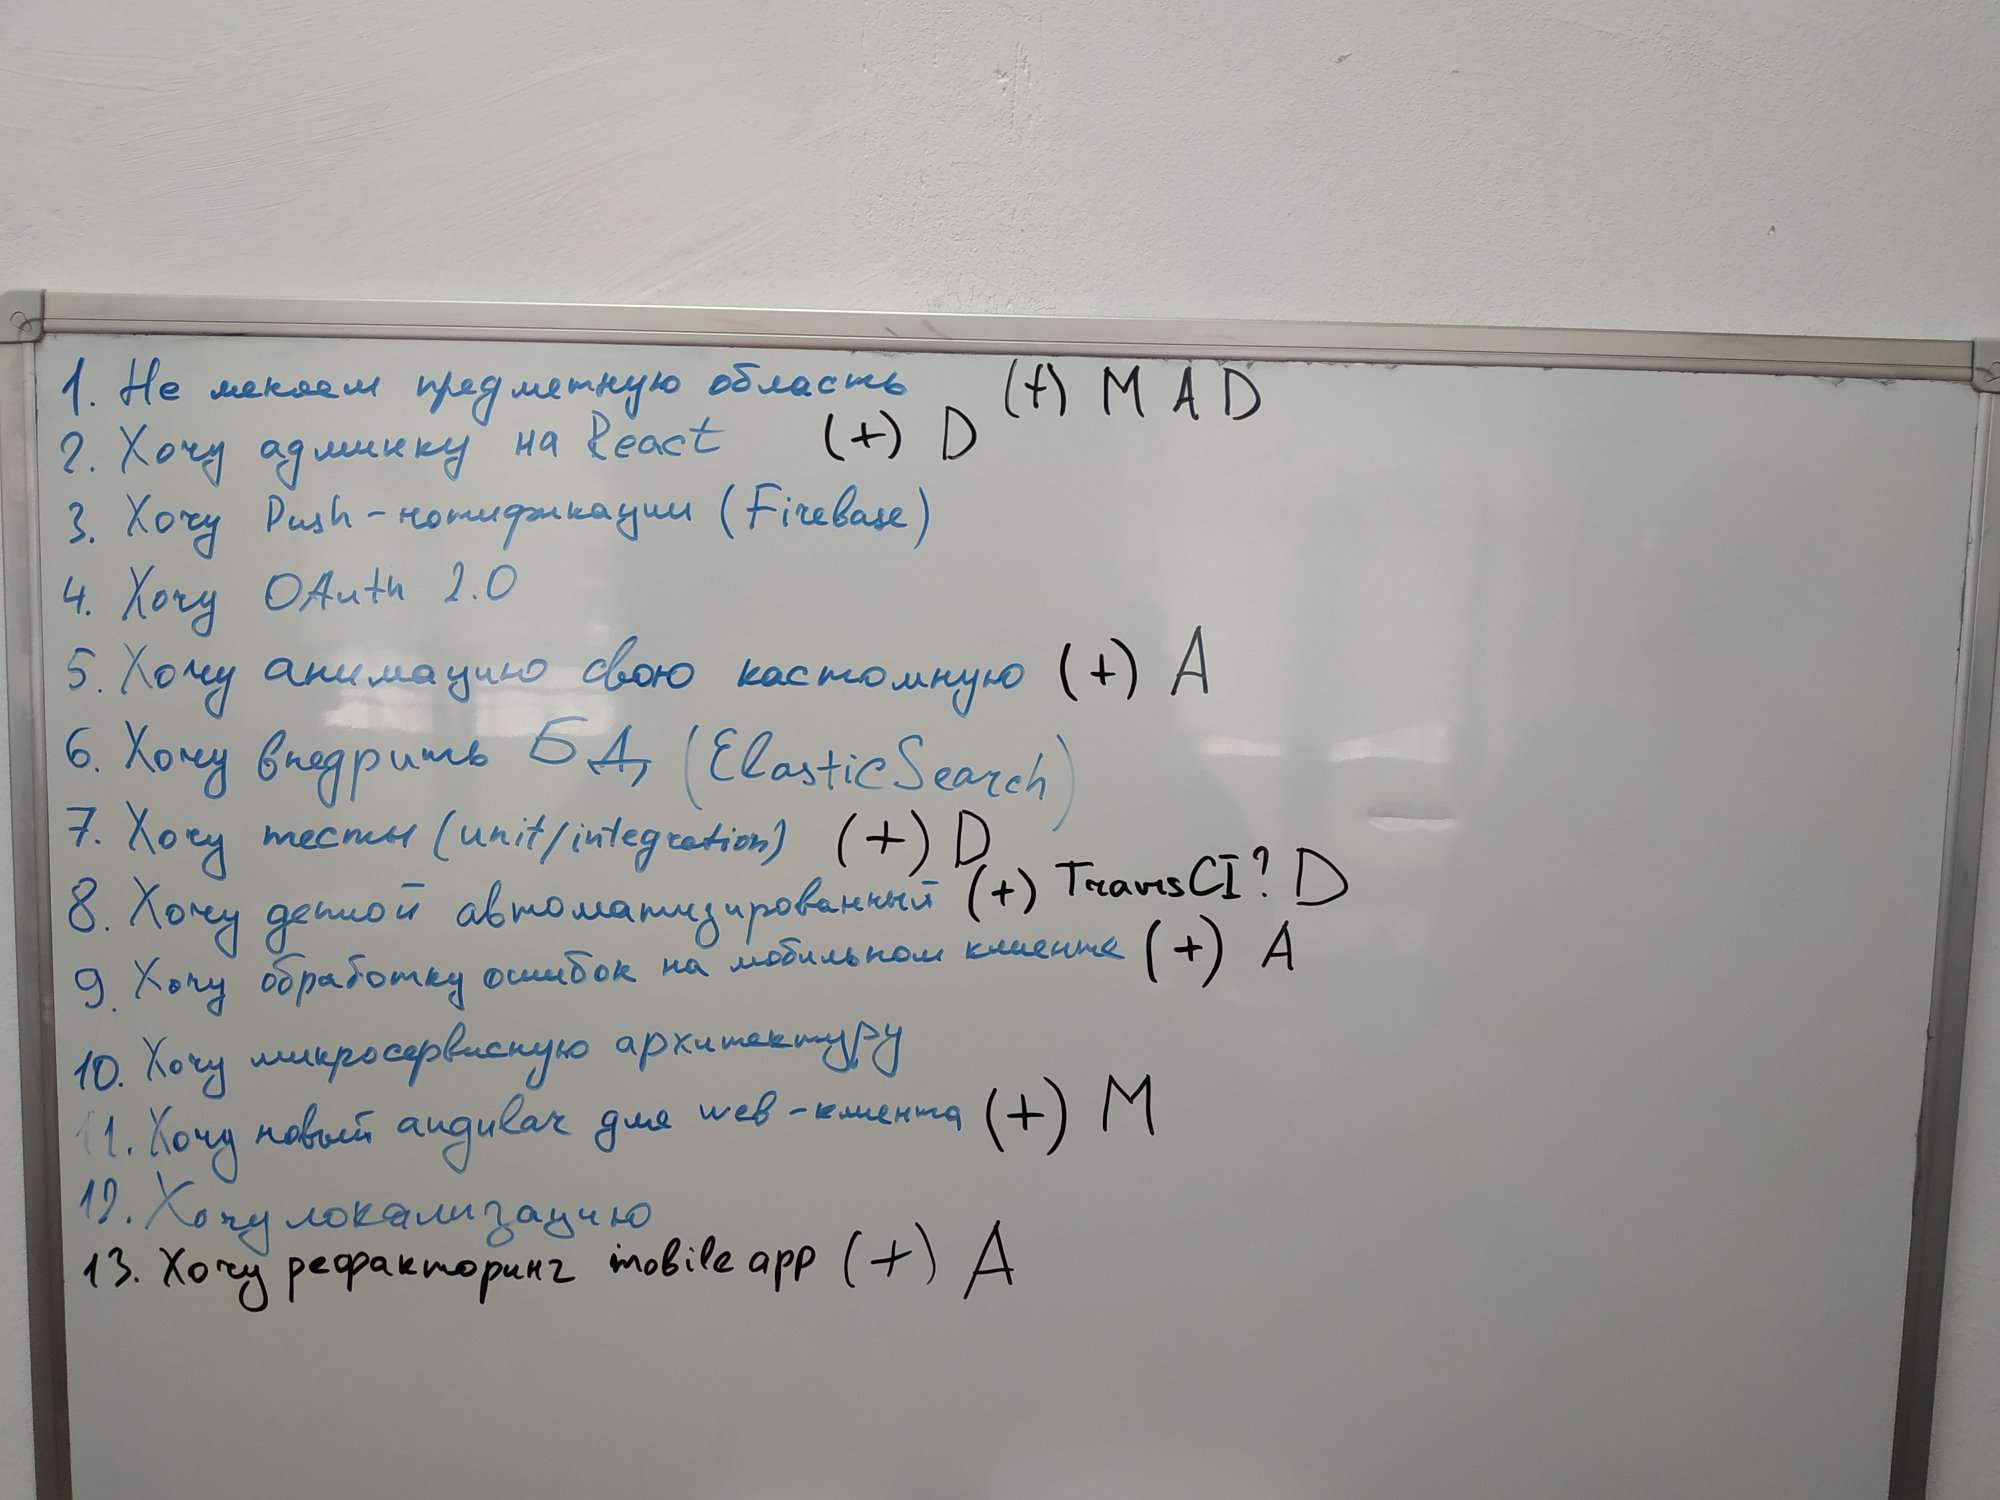 1. Не меняем предметную область (+) M A D
2. Хочу админку на React (+) D
3. Хочу Push-нотификации (Firebase)
4. Хочу OAuth 2.0
5. Хочу анимацию свою кастомную (+) A
6. Хочу внедрить БД (ElasticSearch)
7. Хочу тесты (unit/integration) (+) D
8. Хочу деплой автоматизированный (+) TravisCI? D
9. Хочу обработку ошибок на мобильном клиенте (+) A
10. Хочу микросервисную архитектуру
11. Хочу новый для web-клиента (+) M
12. Хочу локализацию
13. Хочу рефакторинг mobile app (+) A